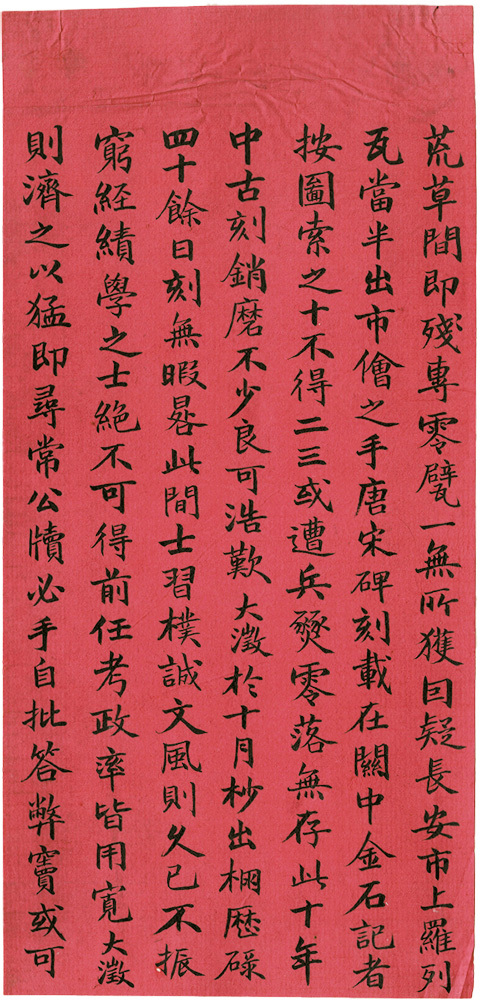 荒草間即殘專零甓一無所獲回疑長安市上羅列
瓦當半出市儈之手唐宋碑刻載在關中金石記者
按圖索之十不得二三或遭兵燹零落無存此十年
中古刻銷磨不少良可浩歎大澂於十月杪出棚歷碌
四十餘日刻無暇晷此間士習樸誠文風則久已不振
窮經績學之士絕不可得前任考政率皆用寬大澂
則濟之以猛即尋常公牘必手自批答弊竇或可